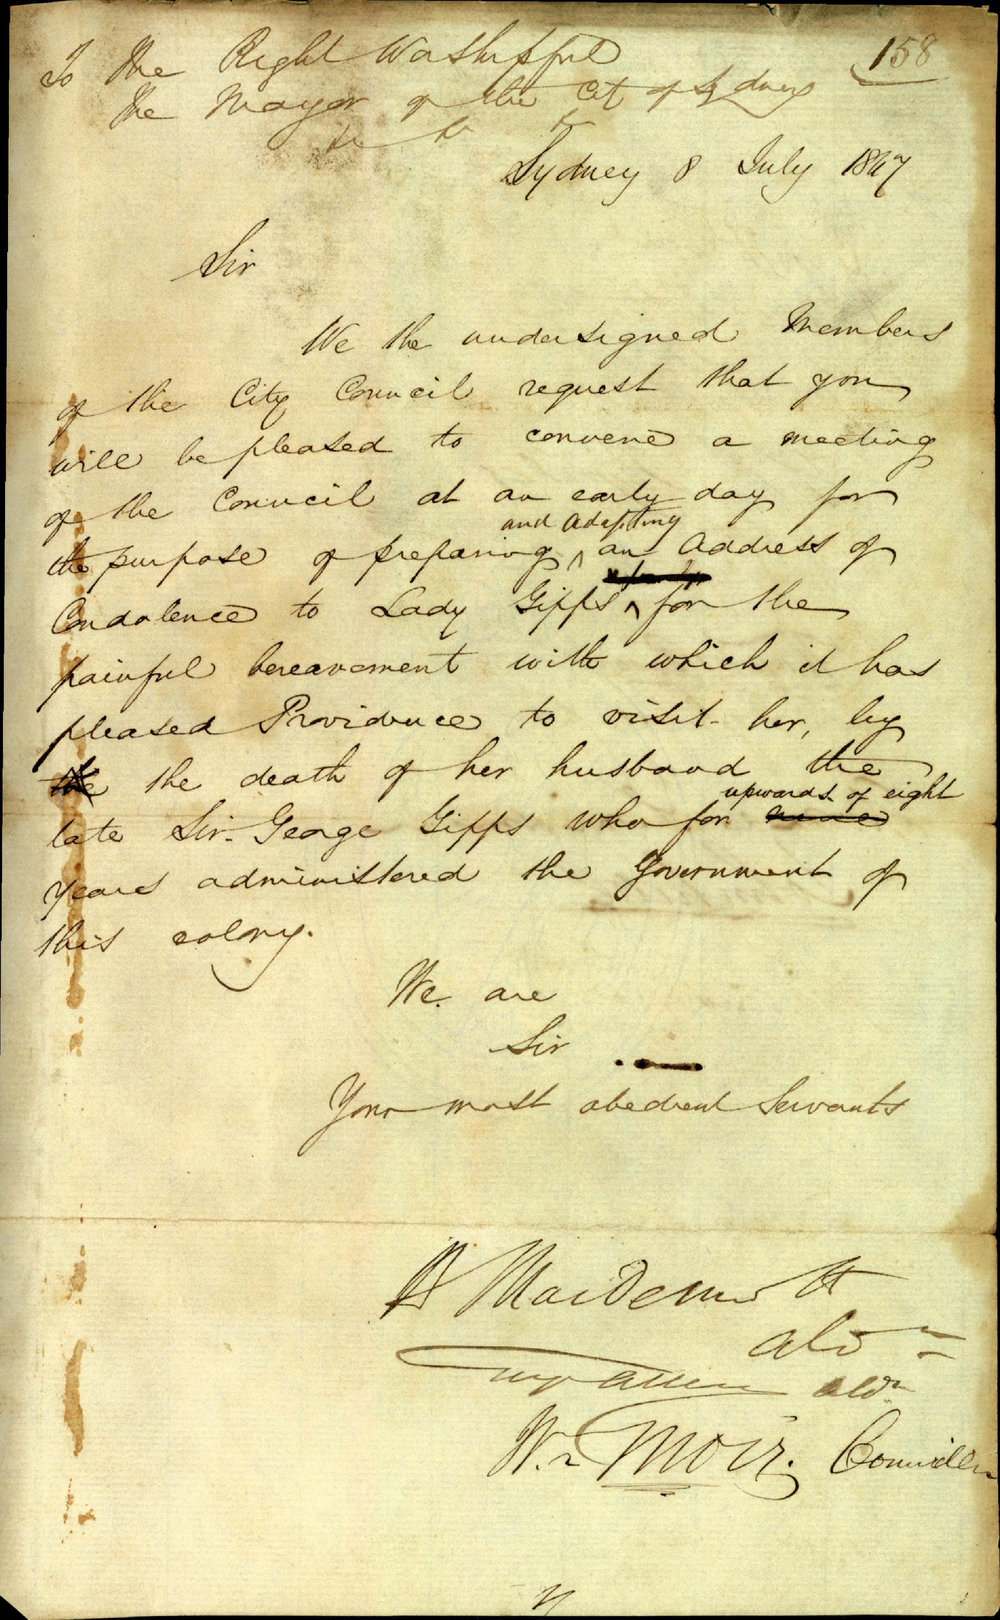 158
To the Right Worshipful
The Mayor of the City of Sydney
&c &c &c
Sydney 8 July 1847
Sir
We the undersigned Members
of the City Council request that you
will be pleased to convene a meeting
of the Council at an early day for
the purpose of preparing and Adopting an Address of
Condolence to Lady Gipps for the
painful bereavement with which it has
pleased Providence to visit her, by
the the death of her husband the
late Sir George Gipps who for upwards of eight
years administered the Government of
this colony.
We are
Sir
Your most obedient Servants
H MacDermott
Aldn
Allen Aldn
Wm Moir. Councillor